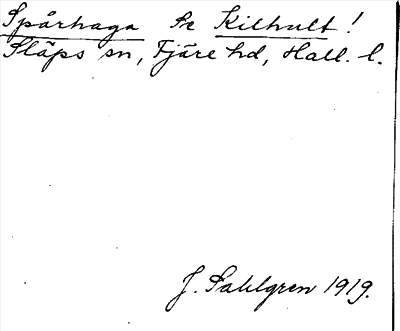 Spårhaga Se Kilhult!
Släps sn, Fjäre hd, Hall. l.
J. Sahlgren 1919.